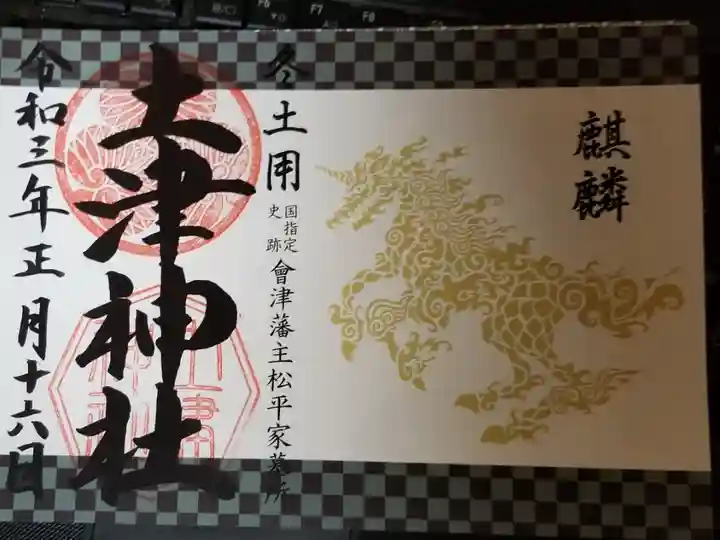 麒麟
冬土用
国指定
史跡
會津藩主松平家墓所
土津神社
令和三年正月十六日